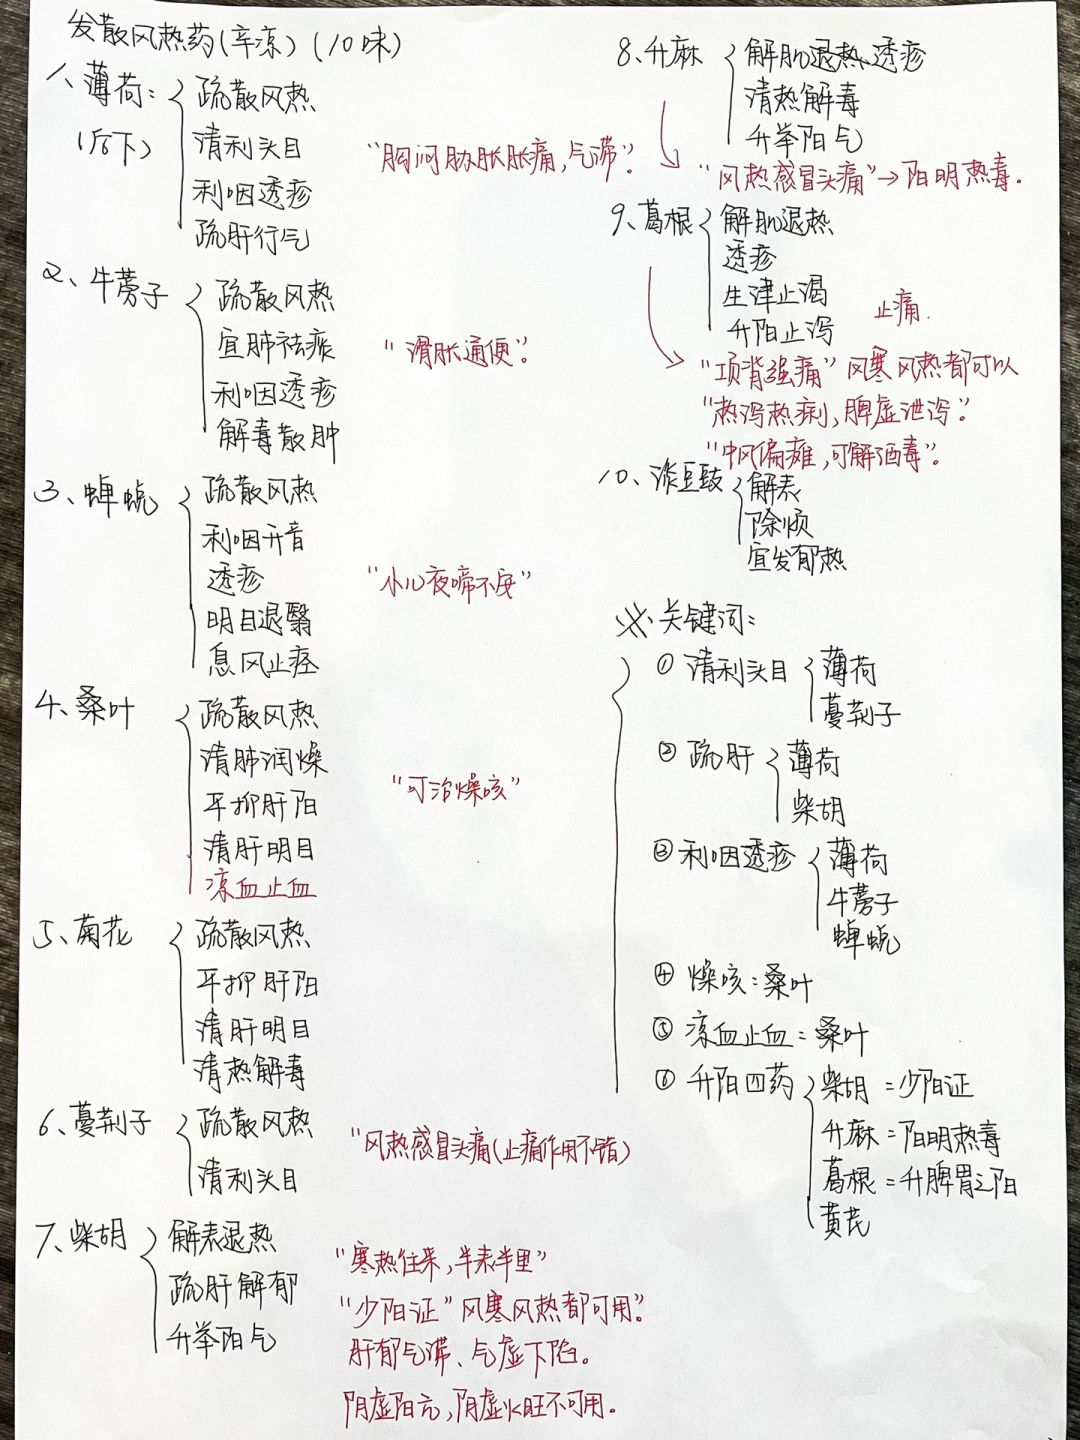 发散风热药(辛凉)(10味)
1、薄荷:
(后下)
疏散风热
清利头目
利咽透疹
疏肝行气
"胸闷胁胀胀痛,气滞".
2、牛蒡子
疏散风热
宣肺祛痰
利咽透疹
解毒散肿
"滑肠通便".
3、蝉蜕
疏散风热
利咽开音
透疹
明目退翳
息风止痉
"小儿夜啼不安"
4、桑叶
疏散风热
清肺润燥
平抑肝阳
清肝明目
凉血止血
"可治燥咳"
5、菊花
疏散风热
平抑肝阳
清肝明目
清热解毒
6、蔓荆子
疏散风热
清利头目
"风热感冒头痛(止痛作用不错)
7、柴胡
解表退热
疏肝解郁
升举阳气
"寒热往来,半表半里"
"少阳证"风寒风热都可用".
肝郁气滞、气虚下陷。
阴虚阳亢,阴虚火旺不可用。
8、升麻
解肌退热、透疹
清热解毒
升举阳气
"风热感冒头痛"→阳明热毒.
9、葛根
解肌退热
透疹
生津止渴
升阳止泻
止痛.
"项背强痛"风寒风热都可以
"热泻热痢,脾虚泄泻".
"中风偏瘫,可解酒毒".
10、淡豆豉
解表
除烦
宣发郁热
※关键词:
① 清利头目
薄荷
蔓荆子
② 疏肝
薄荷
柴胡
③ 利咽透疹
薄荷
牛蒡子
蝉蜕
④ 燥咳=桑叶
⑤ 凉血止血=桑叶
⑥ 升阳四药
柴胡=少阳证
升麻=阳明热毒
葛根=升脾胃之阳
黄芪